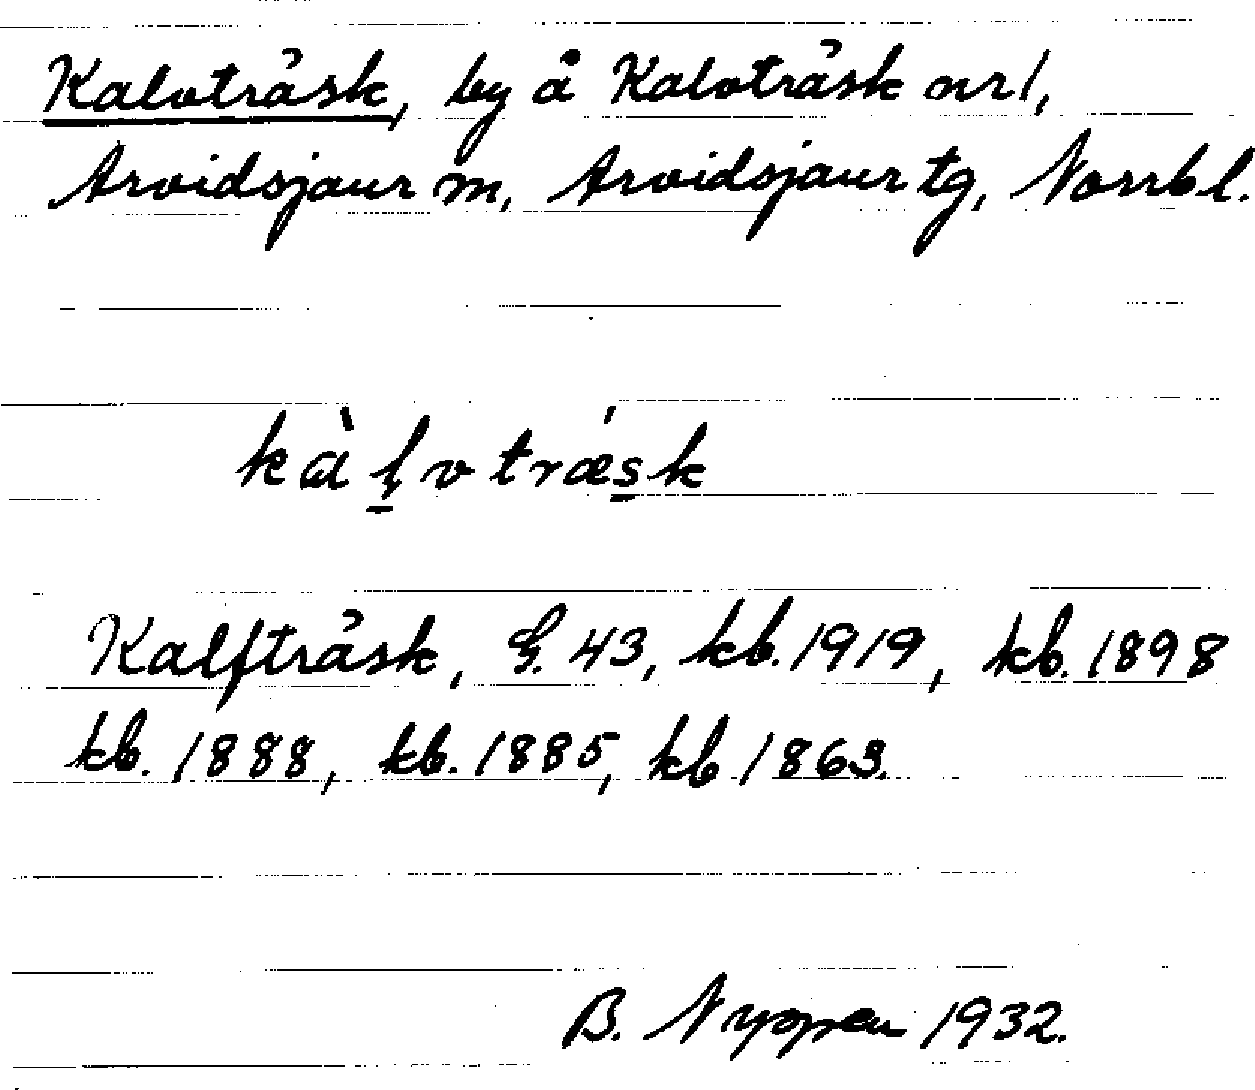 Kalvträsk, by å Kalvträsk nr 1,
Arvidsjaur m, Arvidsjaur tg, Norrb l.
kàḻvtrǽs̲k
Kalfträsk, G. 43, kb. 1919, kb. 1898
kb. 1888, kb. 1885, kb 1863.
B. 1932.